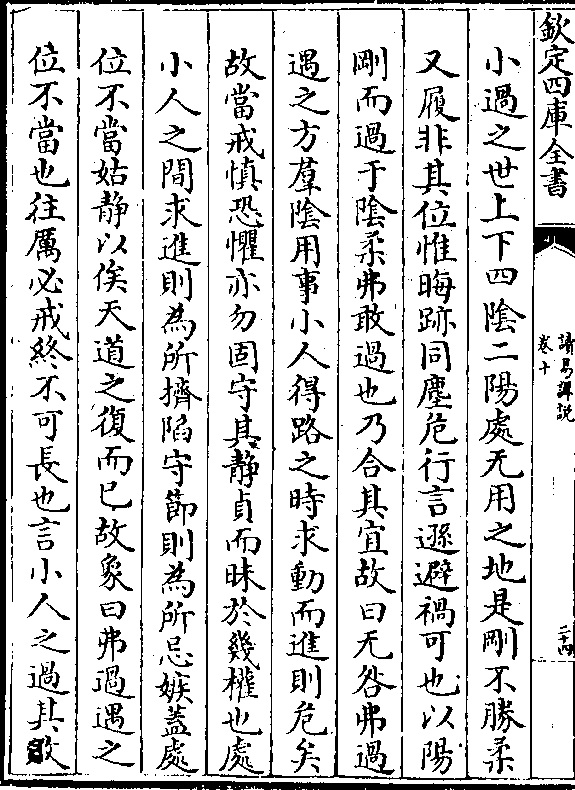 欽定四庫全書
讀易詳說
卷十
二十四
小過之世上下四陰二陽處无用之地是剛不勝柔
又履非其位惟晦跡同塵危行言遜避禍可也以陽
剛而過于陰柔弗敢過也乃合其宜故曰无咎弗過
遇之方羣陰用事小人得路之時求動而進則危矣
故當戒慎恐懼亦勿固守其靜貞而昧於幾權也處
小人之間求進則為所擠陷守節則為所忌嫉蓋處
位不當姑静以俟天道之復而已故象曰弗過遇之
位不當也往厲必戒終不可長也言小人之過其敢